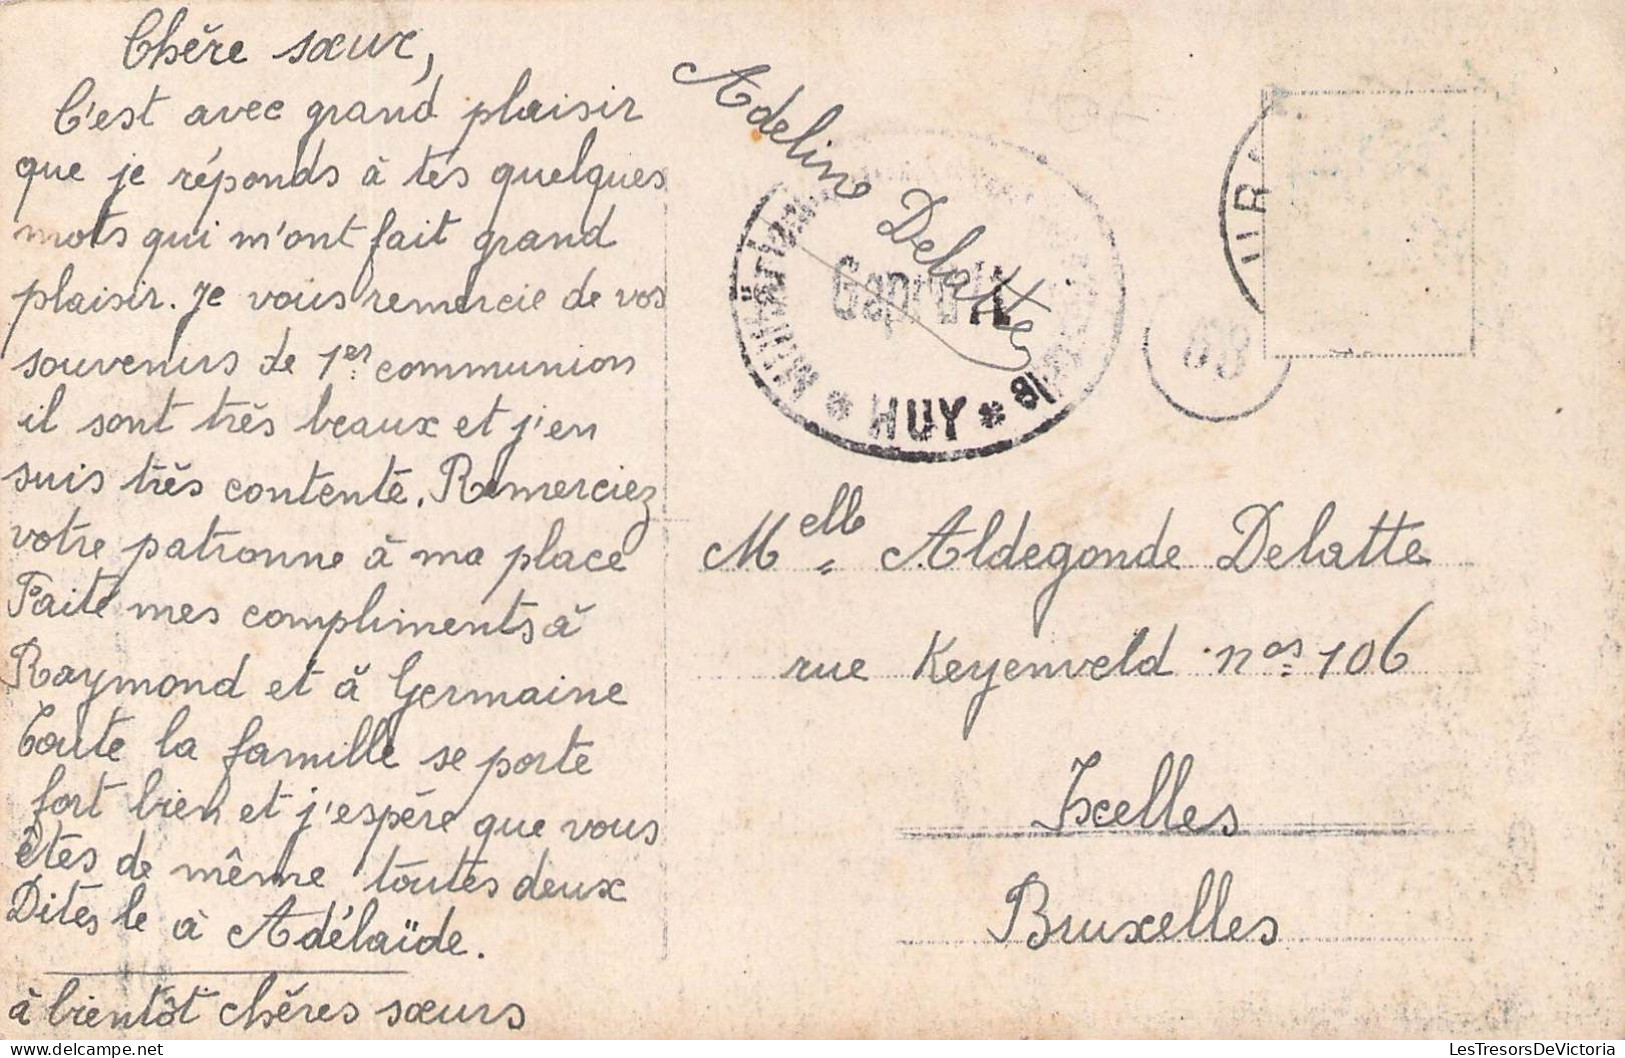 Chère sœur,
C'est avec grand plaisir
que je réponds à tes quelques
mots qui m'ont fait grand
plaisir. Je vous remercie de vos
souvenirs de 1er communion
il sont très beaux et j'en
suis très contente. Remerciez
votre patronne à ma place
Faite mes compliments à
Raymond et à Germaine
Toute la famille se porte
fort bien et j'espère que vous
êtes de même toutes deux
Dites le à Adélaïde.
à bientôt chères sœurs
Adeline Delatte
Geprüft
* HUY *
69
Melle Aldegonde Delatte
rue Keyenveld nos 106
Ixelles
Bruxelles
LesTresorsDeVictoria